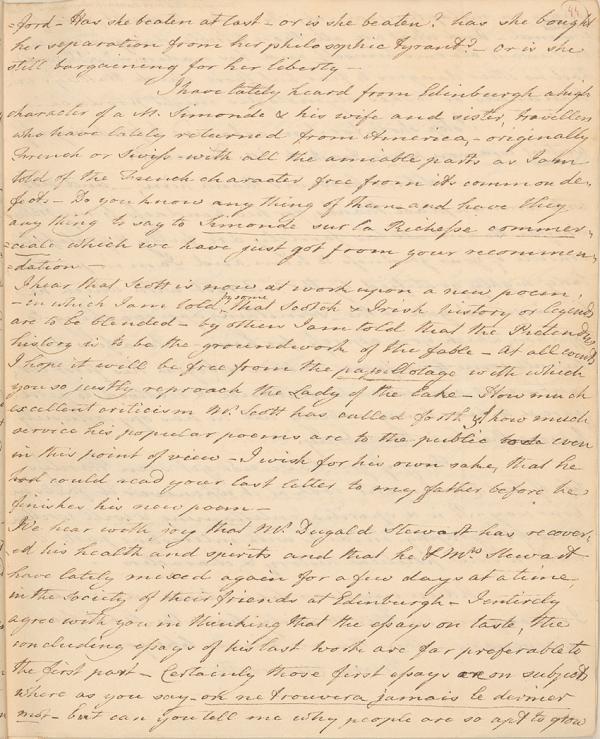 =ford - Has she beaten at last - or is she beaten? has she bought
her separation from her philosophic tyrant? - or is she
still bargaining for her liberty -
I have lately heard from Edinburgh a high
character of a M. Simonde & his wife and sister, travellers
who have lately returned from America, - originally
French or Swiss - with all the amiable parts as I am
told of the French character free from its common de,
fects - Do you know any thing of them - and have they
any thing to say to Simonde sur la Richesse commer,
=ciale which we have just got from your recommen,
=dation -
I hear that Scott is now at work upon a new poem,
- in which I am told by some that Scotch & Irish history or legends
are to be blended - by others I am told that the Pretenders
history is to be the groundwork of the fable - At all events
I hope it will be free from the papillotage with which
you so justly reproach the Lady of the Lake - How much
excellent criticism Mr. Scott has called forth & how much
service his popular poems are to the public even
in this point of view - I wish for his own sake, that he
had could read your last letter to my father before he
finishes his new poem -
We hear with joy that Mr. Dugald Stewart has recover,
ed his health and spirits and that he & Mrs. Stewart
have lately mixed again for a few days at a time,
in the society of their friends at Edinburgh - I entirely
agree with you in thinking that the essays on taste, the
concluding essays of his last work are far preferable to
the first part - Certainly those first essays are on subjects
where as you say - on ne trouvera jamais le dernier
mot - but can you tell me why people are so apt to grow